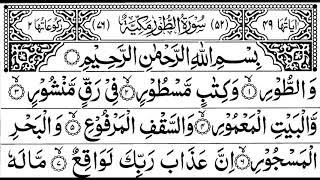 اٰیَاتُهَا ٤٩ (٥٢) سُوْرَةُ الطُّوْرِ مَكِّيَّةٌ (٧٦) رُكُوْعَاتُهَا ٢
بِسْمِ اللّٰهِ الرَّحْمٰنِ الرَّحِيْمِ
وَالطُّوْرِ ۙ﴿١﴾ وَكِتٰبٍ مَّسْطُوْرٍ ۙ﴿٢﴾ فِيْ رَقٍّ مَّنْشُوْرٍ ۙ﴿٣﴾
وَّالْبَيْتِ الْمَعْمُوْرِ ۙ﴿٤﴾ وَالسَّقْفِ الْمَرْفُوْعِ ۙ﴿٥﴾ وَالْبَحْرِ
الْمَسْجُوْرِ ۙ﴿٦﴾ اِنَّ عَذَابَ رَبِّكَ لَوَاقِعٌ ۙ﴿٧﴾ مَّا لَهٗ